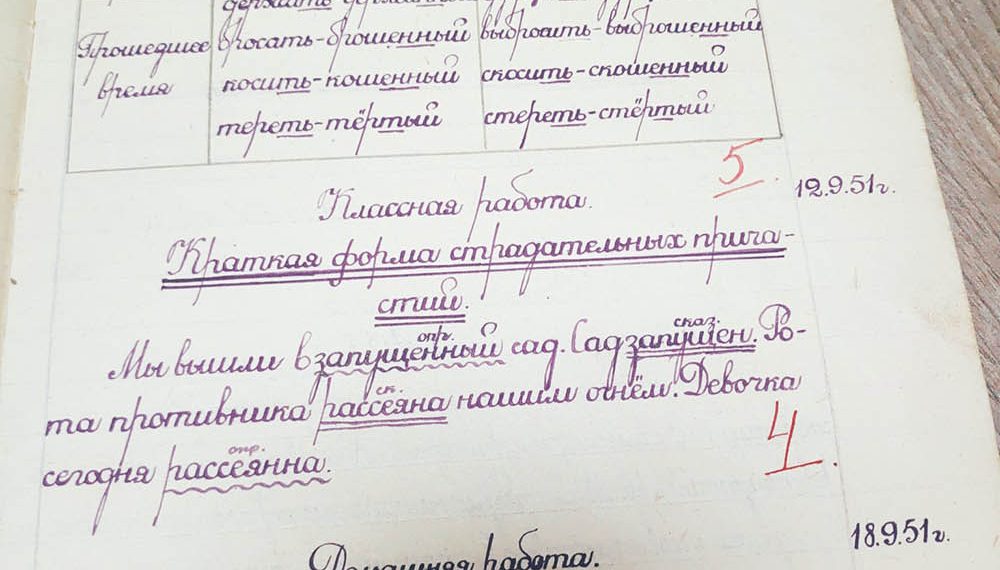 держать
Прошедшее бросать-брошенный выбросить-выброшенный
время косить-кошенный скосить-скошенный
тереть-тёртый стереть-стёртый
5.
12.9.51г.
Классная работа.
Краткая форма страдательных прича-
стий.
опр. сказ.
Мы вышли в запущенный сад. Сад запущен. Ро-
ск.
та противника рассеяна нашим огнём. Девочка
опр.
сегодня рассеянна.
4.
18.9.51г.
Домашняя работа.